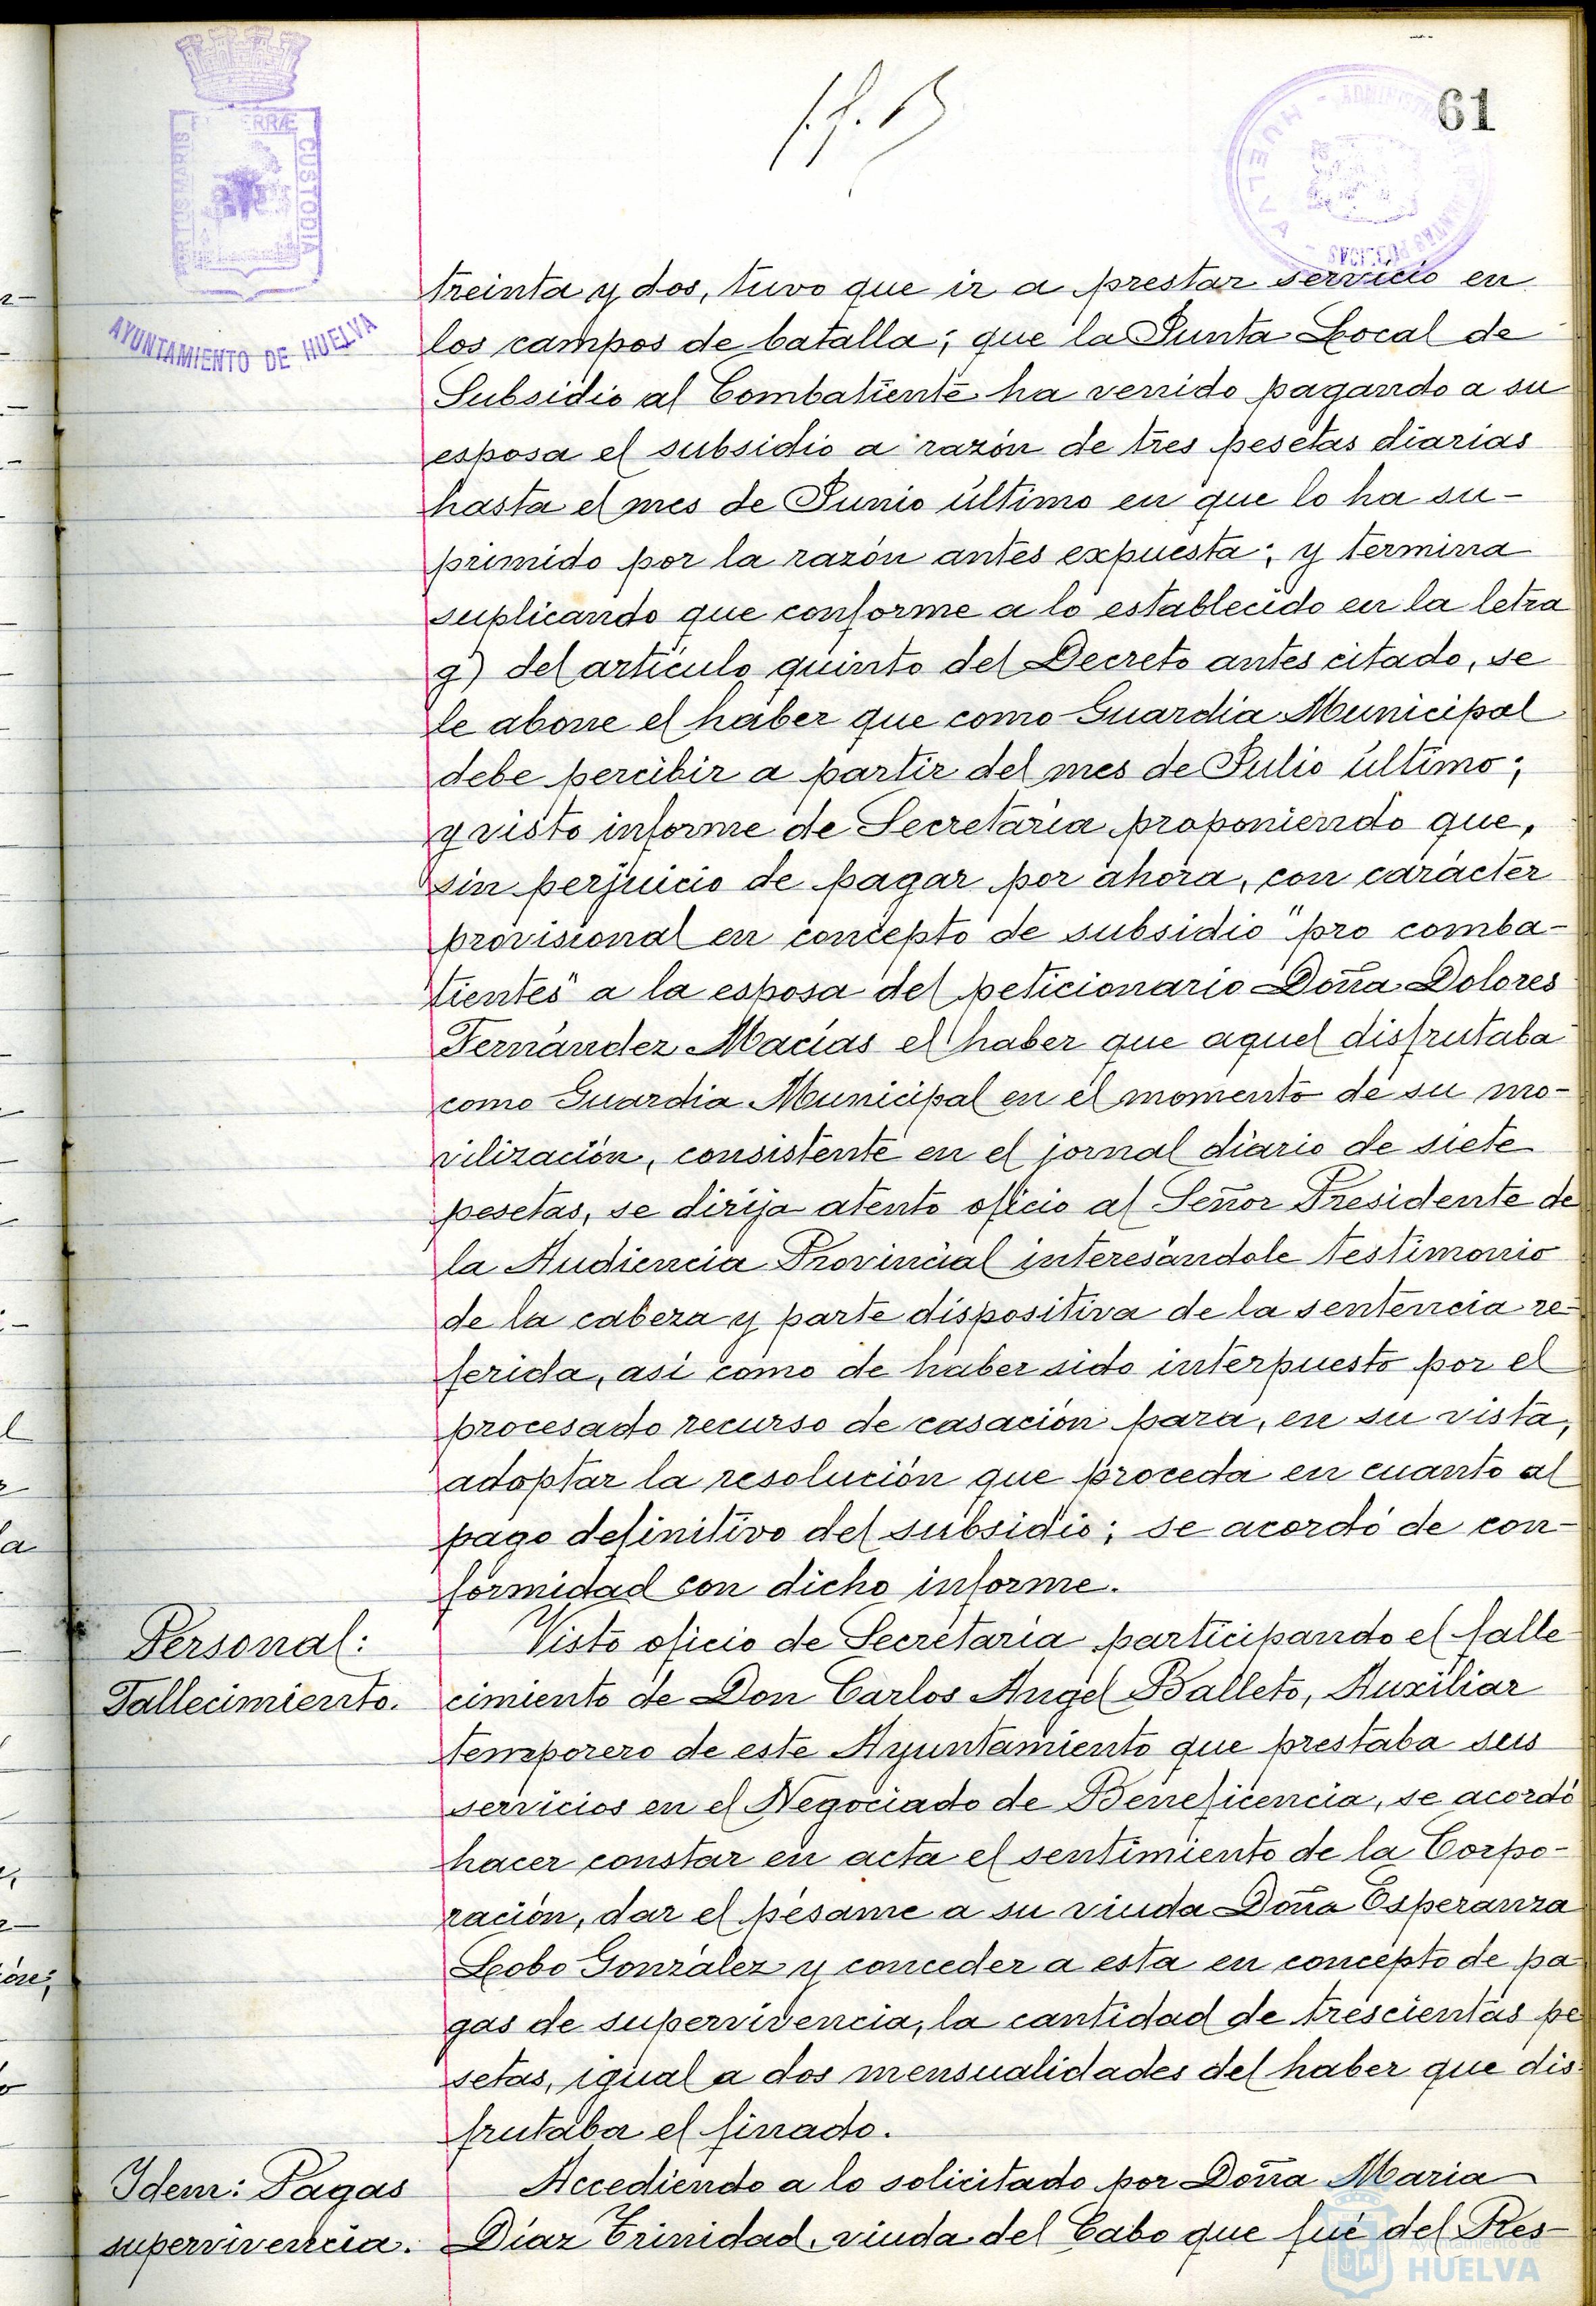 61
PORTUS MARIS ET TERRÆ CUSTODIA
AYUNTAMIENTO DE HUELVA
HUELVA
treinta y dos, tuvo que ir a prestar servicio en
los campos de batalla; que la Junta Local de
Subsidio al Combatiente ha venido pagando a su
esposa el subsidio a razón de tres pesetas diarias
hasta el mes de Junio último en que lo ha su-
primido por la razón antes expuesta; y termina
suplicando que conforme a lo establecido en la letra
g) del artículo quinto del Decreto antes citado, se
le abone el haber que como Guardia Municipal
debe percibir a partir del mes de Julio último;
y visto informe de Secretaría proponiendo que,
sin perjuicio de pagar por ahora, con carácter
provisional en concepto de subsidio "pro comba-
tientes" a la esposa del peticionario Doña Dolores
Fernández Macías el haber que aquel disfrutaba
como Guardia Municipal en el momento de su mo-
vilización, consistente en el jornal diario de siete
pesetas, se dirija atento oficio al Señor Presidente de
la Audiencia Provincial interesándole testimonio
de la cabeza y parte dispositiva de la sentencia re-
ferida, así como de haber sido interpuesto por el
procesado recurso de casación para, en su vista,
adoptar la resolución que proceda en cuanto al
pago definitivo del subsidio; se acordó de con-
formidad con dicho informe.
Personal:
Fallecimiento.
Visto oficio de Secretaría participando el falle-
cimiento de Don Carlos Angel Balleto, Auxiliar
temporero de este Ayuntamiento que prestaba sus
servicios en el Negociado de Beneficencia, se acordó
hacer constar en acta el sentimiento de la Corpo-
ración, dar el pésame a su viuda Doña Esperanza
Lobo González y conceder a esta en concepto de pa
gas de supervivencia, la cantidad de trescientas pe
setas, igual a dos mensualidades del haber que dis-
frutaba el finado.
Idem: Pagas
supervivencia.
Accediendo a lo solicitado por Doña Maria
Díaz Trinidad, viuda del Cabo que fué del Res-
Ayuntamiento de
HUELVA